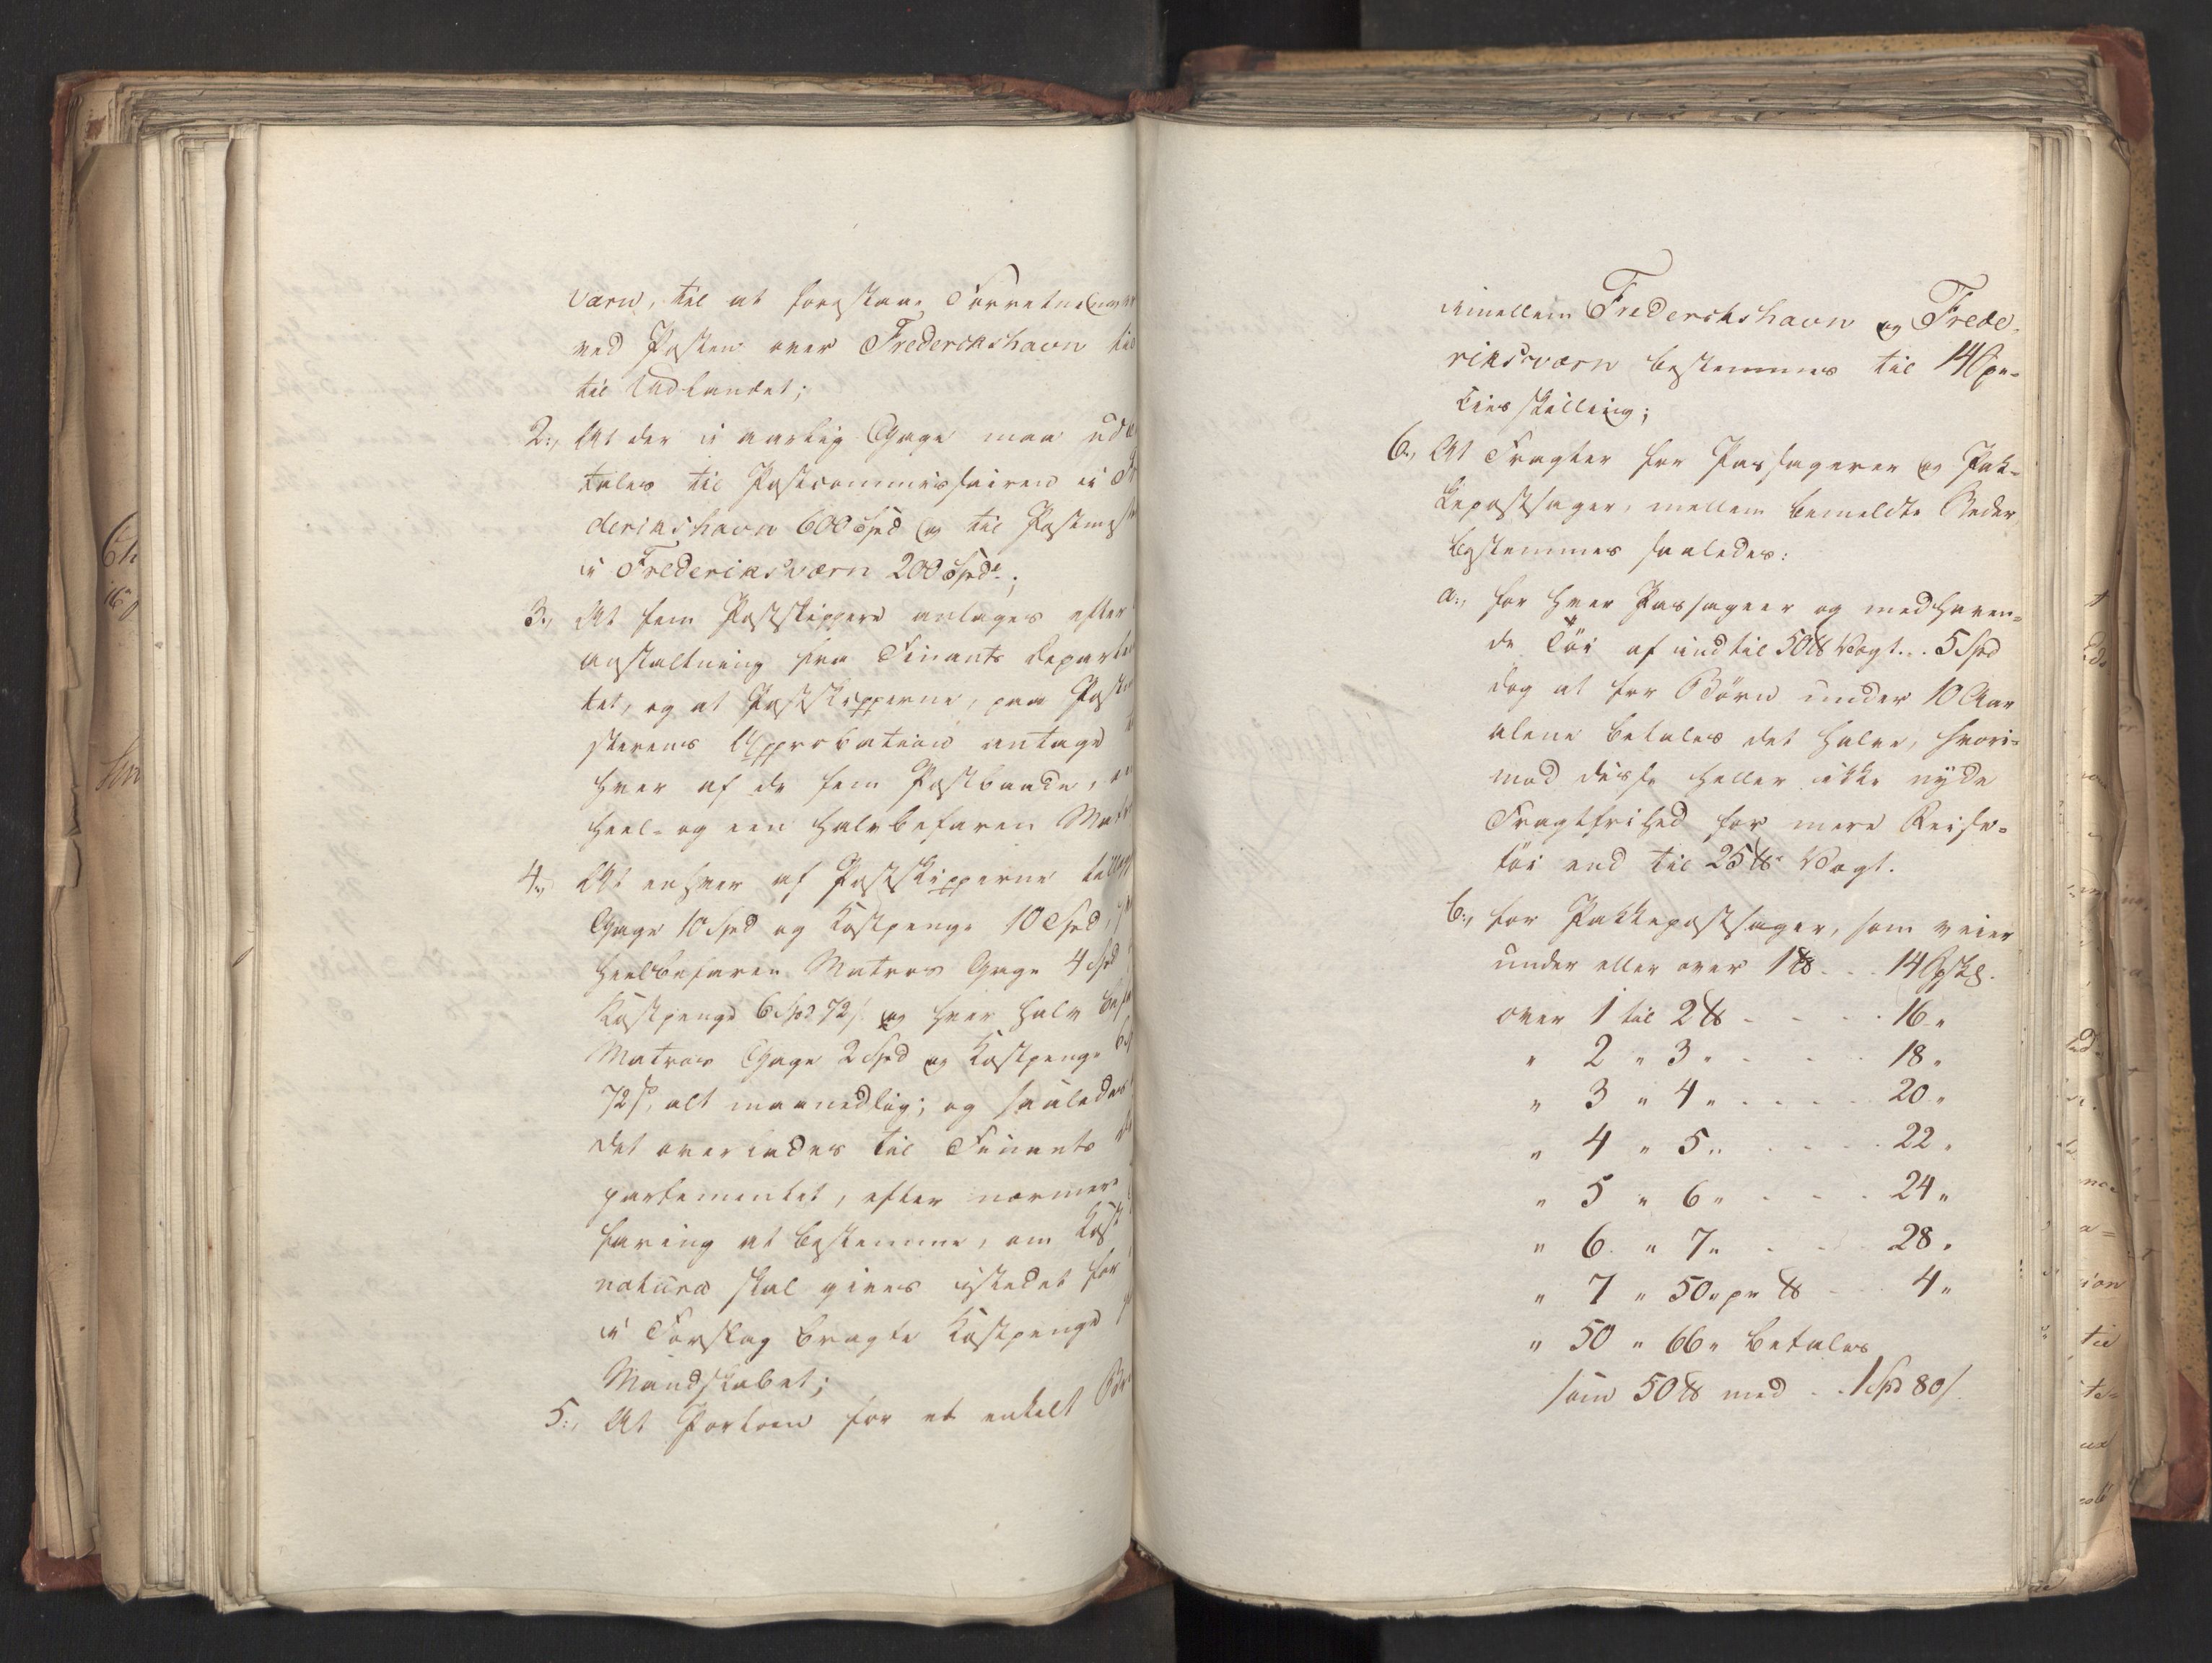 værn, til at forestaae Forretningerne
ved Posten over Frederikshavn til
til Udlandet;
2:, At der i aarlig Gage maa udbe
tales til Postcommissairen i Fr
derikshavn 600 Spd og til Postmest
i Frederiksværn 200 Spdr.;
3., At fem Postskippere antages efter
anstaltning fra Finants Departe
tet, og at Postskipperne, paa Post
sterens Approbation antage
hver af de fem Postbaade, en
heel- og een halvbefaren Matr
4., At enhver af Postskipperne tillægges
Gage 10 Spd og Kostpenge 10 Spd,
heelbefaren Matros Gage 4 Spd
Kostpenge 6 Spd 72 s og hver halvbefa
Matros Gage 2 Spd og Kostpenge 6 S
72 s, alt maanedlig; og saaledes
det overlades til Finants de
partementet, efter nærmere
faring at bestemme, om Kost
natura skal gives istedet for
i Forslag bragte Kostpenge
Mandskabet;
5:, At Portoen for et enkelt Br
imellem Frederikshavn og Frede-
riksværn bestemmes til 14 Spe-
cies skilling;
6., At Fragter for Passagerer og Pak-
kepostsager, mellem bemeldte Steder,
bestemmes saaledes:
a:, for hver Passageer og medhaven-
de Töi af indtil 50 ℔ Vægt... 5 Spd
dog at for Börn under 10 Aar
alene betales det halve, hvori-
mod disse heller ikke nyde
Fragtfrihed for mere Reise-
töi end til 25 ℔ Vægt.
b:, for Pakkepostsager, som veier
under eller over 1 ℔ . . . 14 Spskl.
over 1 til 2 ℔ - - - - 16 "
" 2 " 3 " - - - 18 "
" 3 " 4 " - - - - 20 "
" 4 " 5 " - - - - 22 "
" 5 " 6 " - - - 24 "
" 6 " 7 " - - - 28 "
" 7 " 50 " pr ℔ - - 4 "
" 50 " 66 " betales
som 50 ℔ med . . 1 Spd 80 s.